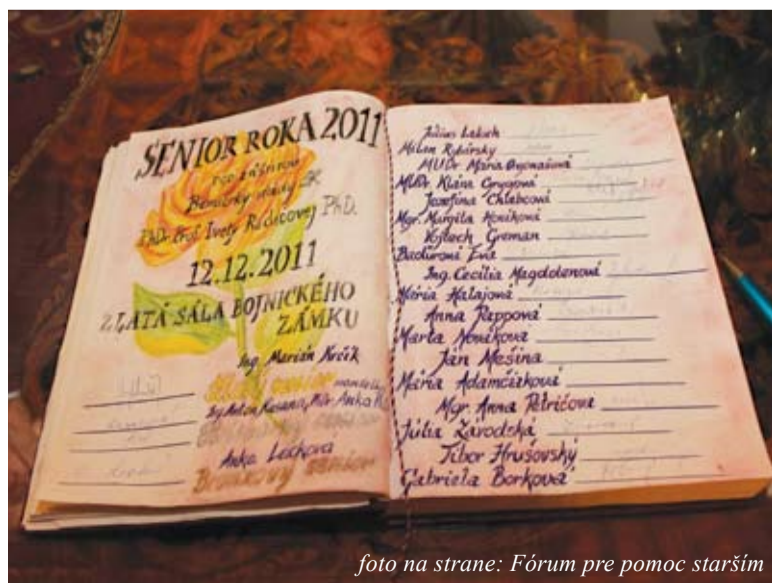 SENIOR ROKA 2011
Pod záštitou
PhDr. Prof. Ivety Radičovej PhD.
12.12.2011
ZLATÁ SÁLA BOJNICKÉHO
ZÁMKU
Ing. Marián
Zlatý senior
Ing. Anton
Anka
Bronzový senior
Július
Milan Rybársky
MUDr. Mária
MUDr. Klára
Jozefína Chlebcová
Mgr. Margita
Vojtech Greman
Ing. Cecília Magdolenová
Mária Halajová
Anna Pappová
Marta Nováková
Ján Mešina
Mária Adamčiaková
Mgr. Anna Petričová
Júlia Závodská
Tibor Hrušovský
Gabriela Borková
foto na strane: Fórum pre pomoc starším